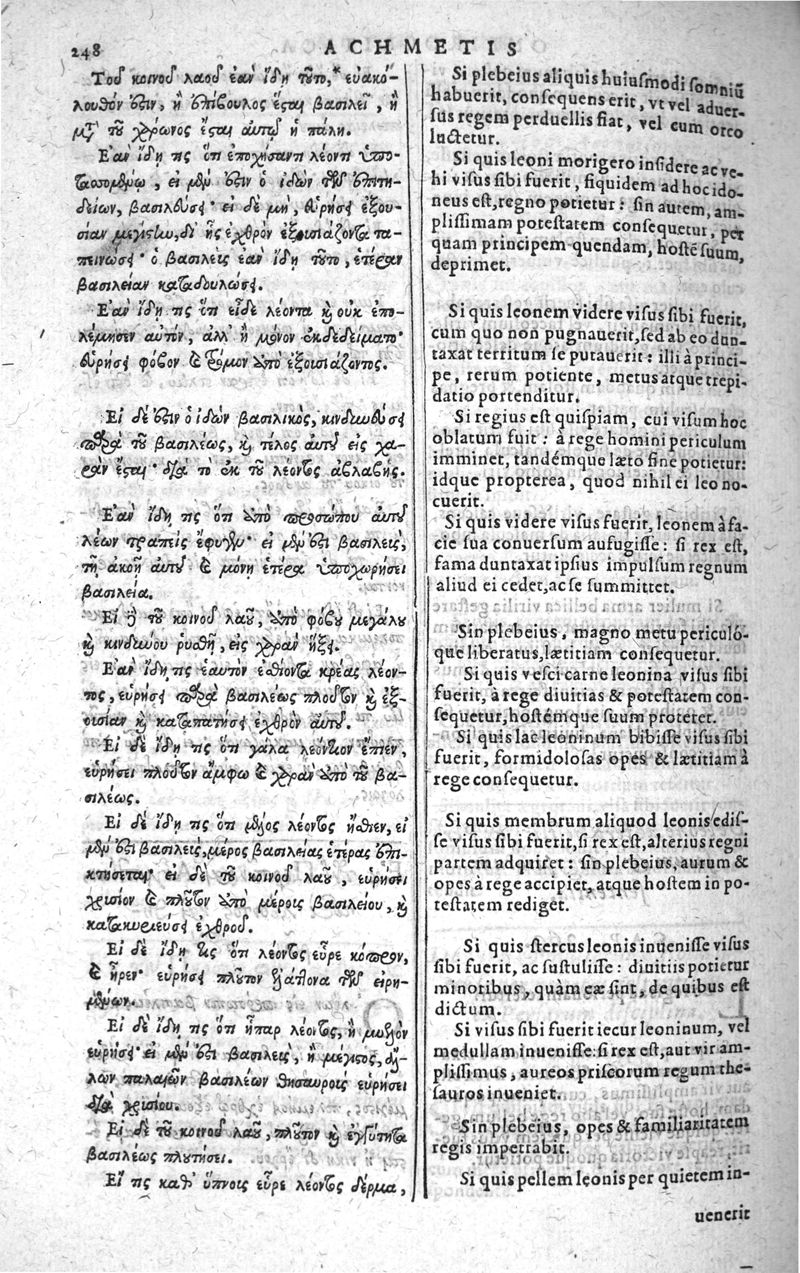 248 ACHMETIS
Τοῦ κοινοῦ λαοῦ ἐὰν ἴδῃ τοῦτο,* εὐακό-
λουθόν ἐστιν, ἢ ἐπίβουλος ἔσται βασιλεῖ, ἢ
μετὰ τοῦ χάρωνος ἔσται αὐτῷ ἡ πάλη.
Ἐὰν ἴδῃ τις ὅτι ἐποχήσατο λέοντι ὑπο-
τασσομένῳ, εἰ μέν ἐστιν ὁ ἰδὼν τῶν ἐπιτη-
δείων, βασιλεύσει· εἰ δὲ μὴ, εὑρήσει ἐξου-
σίαν μεγίστην, δι' ἧς ἐχθρὸν ἐξουσιάζοντα τα-
πεινώσει· ὁ βασιλεὺς ἐὰν ἴδῃ τοῦτο, ἑτέραν
βασιλείαν καταδουλώσει.
Ἐὰν ἴδῃ τις ὅτι εἶδε λέοντα καὶ οὐκ ἐπο-
λέμησεν αὐτὸν, ἀλλ' ἢ μόνον ἐκδεδείματο·
εὑρήσει φόβον καὶ τρόμον ἀπὸ ἐξουσιάζοντος.
Εἰ δέ ἐστιν ὁ ἰδὼν βασιλικὸς, κινδυνεύσει
παρὰ τοῦ βασιλέως, καὶ τέλος αὐτοῦ εἰς χα-
ρὰν ἔσται· διὰ τὸ ἐκ τοῦ λέοντος ἀβλαβής.
Ἐὰν ἴδῃ τις ὅτι ἀπὸ προσώπου αὐτοῦ
λέων τραπεὶς ἔφυγεν· εἰ μέν ἐστι βασιλεὺς,
τῇ ἀκοῇ αὐτοῦ καὶ μόνῃ ἑτέρα ὑποχωρήσει
βασιλεία.
Εἰ δὲ τοῦ κοινοῦ λαοῦ, ἀπὸ φόβου μεγάλου
καὶ κινδύνου ῥυσθῇ, εἰς χαρὰν ἥξει.
Ἐὰν ἴδῃ τις ἑαυτὸν ἐσθίοντα κρέας λέον-
τος, εὑρήσει παρὰ βασιλέως πλοῦτον καὶ ἐξ-
ουσίαν καὶ καταπατήσει ἐχθρὸν αὐτοῦ.
Εἰ δὲ ἴδῃ τις ὅτι γάλα λεόντιον ἔπιεν,
εὑρήσει πλοῦτον ἄμφω καὶ χαρὰν ἀπὸ τοῦ βα-
σιλέως.
Εἰ δὲ ἴδῃ τις ὅτι μέλος λέοντος ἤσθιεν, εἰ
μέν ἐστι βασιλεὺς, μέρος βασιλείας ἑτέρας ἐπι-
κτήσεται· εἰ δὲ τοῦ κοινοῦ λαοῦ, εὑρήσει
χρυσίον καὶ πλοῦτον ἀπὸ μέρους βασιλείου, καὶ
κατακυριεύσει ἐχθροῦ.
Εἰ δὲ ἴδῃ τις ὅτι λέοντος εὗρε κόπρον,
καὶ ἦρεν· εὑρήσει πλοῦτον ἐλάττονα τῶν εἰρη-
μένων.
Εἰ δὲ ἴδῃ τις ὅτι ἧπαρ λέοντος, ἢ μυελὸν
εὑρήσει· εἰ μέν ἐστι βασιλεὺς, ἢ μέγιστος,
παλαιῶν βασιλέων θησαυροὺς εὑρήσει
διὰ χρυσίου.
Εἰ δὲ τοῦ κοινοῦ λαοῦ, πλοῦτον καὶ ἐγγύτητα
βασιλέως πλουτήσει.
Εἴ τις καθ' ὕπνους εὗρε λέοντος δέρμα,
Si plebeius aliquis huiuſmodi ſomniũ
habuerit, conſequens erit, vt vel aduer-
ſus regem perduellis fiat, vel cum orco
luctetur.
Si quis leoni morigero inſidere ac ve-
hi viſus ſibi fuerit, ſiquidem ad hoc ido-
neus eſt, regno potietur: ſin autem, am-
pliſſimam poteſtatem conſequetur, per
quam principem quendam, hoſtẽ ſuum,
deprimet.
Si quis leonem videre viſus ſibi fuerit,
cum quo non pugnauerit, ſed ab eo dun-
taxat territum ſe putauerit: illi à princi-
pe, rerum potiente, metus atque trepi-
datio portenditur.
Si regius eſt quiſpiam, cui viſum hoc
oblatum fuit: à rege homini periculum
imminet, tandémque læto fine potietur:
idque propterea, quod nihil ei leo no-
cuerit.
Si quis videre viſus fuerit, leonem à fa-
cie ſua conuerſum aufugiſſe: ſi rex eſt,
fama duntaxat ipſius impulſum regnum
aliud ei cedet, ac ſe ſummittet.
Sin plebeius, magno metu periculó-
que liberatus, lætitiam conſequetur.
Si quis veſci carne leonina viſus ſibi
fuerit, à rege diuitias & poteſtatem con-
ſequetur, hoſtémque ſuum proteret.
Si quis lac leoninum bibiſſe viſus ſibi
fuerit, formidoloſas opes & lætitiam à
rege conſequetur.
Si quis membrum aliquod leonis ediſ-
ſe viſus ſibi fuerit, ſi rex eſt, alterius regni
partem adquiret: ſin plebeius, aurum &
opes à rege accipiet, atque hoſtem in po-
teſtatem rediget.
Si quis ſtercus leonis inueniſſe viſus
ſibi fuerit, ac ſuſtuliſſe: diuitiis potietur
minoribus, quàm eæ ſint, de quibus eſt
dictum.
Si viſus ſibi fuerit iecur leoninum, vel
medullam inueniſſe: ſi rex eſt, aut vir am-
pliſſimus, aureos priſcorum regum the-
ſauros inueniet.
Sin plebeius, opes & familiaritatem
regis impetrabit.
Si quis pellem leonis per quietem in-
uenerit